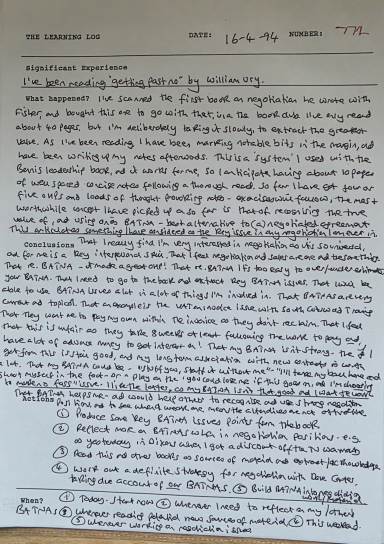 THE LEARNING LOG DATE: 16-4-94 NUMBER:
Significant Experience
I've been reading "getting past no" by William Ury.
What happened? I've scanned the first book on negotiation he wrote with
Fisher, and bought this one to go with that, via the book club. I've only read
about 40 pages, but I'm deliberately taking it slowly, to extract the greatest
value. As I've been reading I have been marking notable bits in the margin, and
have been writing up my notes afterwards. This is a system I used with the
Bennis leadership book, and it works for me, so I anticipate having about 10 pages
of well spaced concise notes following a thorough read. So far I have got four or
five and loads of thought provoking notes - exercises will follow, the most
worthwhile concept I have picked up so far is that of recognising the true
value of, and using one's BATNA - best alternative to (a) negotiated agreement
This anticipates something I have considered as the key issue in any negotiation I've ever in.
Conclusions That I really find I'm very interested in negotiation as it is so universal,
and for me is a key interpersonal skill. That I feel negotiation and sales are one and the same thing
That re. BATNA - it made a great one! That re. BATNA it's too easy to over/under estimate
your BATNA. That I need to go to the book and extract key BATNA issues. That I will be
able to use BATNA issues a lot in a lot of things I'm involved in. That BATNAs are very
current and topical. That an example is the VAT invoice issue with South Cotswold Training
That they want me to pay my own within the invoice as they don't reclaim. That I feel
that this is unfair as they take 8 weeks at least following the work to pay and
have a lot of advance money to get interest on! That my BATNA isn't strong - the £ I
get from this is too good, and my long term association with new contacts is worth
a lot. That my BATNA could be "stuff you, staff it without me" - "I'll
shoot myself in the foot - or a play on the "you could lose me if this goes on, and I'm choosing
to make no fuss" issue.
That BATNA helps me - and would help others to recognise and use strong negotiation
Actions positions and to see where weak are means the alternatives are not attractive
① Produce some key BATNA issues points from the book
② Reflect more on BATNAs when in negotiation positions - e.g.
as yesterday in Dixons when I got a discount off the TV warranty
③ Read this and other books as sources of material and extract for knowledge
④ Work out a definite strategy for negotiation with Dave Carter,
taking due account of our BATNAs. ⑤ Build BATNA into
When? ① Today - start now ② Whenever I need to reflect on my/others
BATNAs ③ whenever reading potential new sources of material. ④ This weekend.
⑤ whenever working on negotiation issues